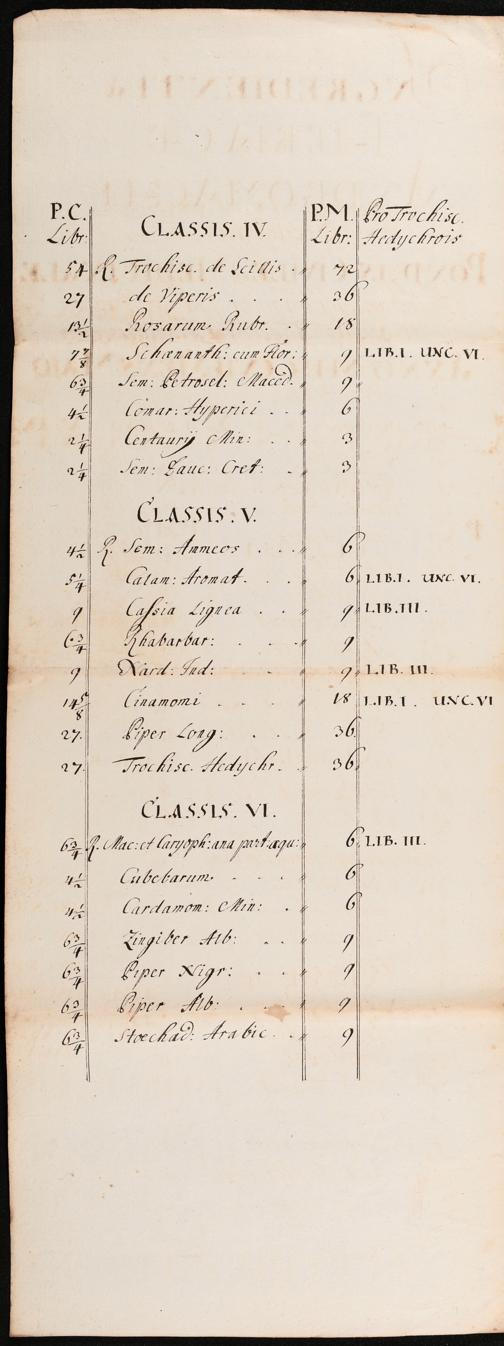 P.C. CLASSIS. IV. P.M. Pro Trochisc.
Libr: Libr: Hedychrois
54 R. Trochisc. de Scillis . 72
27 de Viperis . . . 36
13 1/2 Rosarum Rubr. . 18
7 7/8 Schananth: cum Flor: 9 LIB. I. UNC. VI.
6 3/4 Sem: Petrosel: Maced. 9
4 1/2 Comar: Hyperici . . 6
2 1/4 Centaurij Min: . . 3
2 1/4 Sem: Dauc: Cret: . 3
CLASSIS. V.
4 1/2 R. Sem: Ammeos . . . 6
5 1/4 Calam: Aromat. . . 6 LIB. I. UNC. VI.
9 Cassia Lignea . . 9 LIB. III.
6 3/4 Rhabarbar: . . . 9
9 Nard: Ind: . . . 9 LIB. III.
14 5/8 Cinamomi . . . 18 LIB. I. UNC. VI
27. Piper Long: . . . 36
27. Trochisc. Hedychr. . 36
CLASSIS. VI.
6 3/4 R. Mac: et Caryoph: ana part. æqu: 6 LIB. III.
4 1/2 Cubebarum . . . 6
4 1/2 Cardamom: Min: . 6
6 3/4 Zingiber Alb: . . 9
6 3/4 Piper Nigr: . . 9
6 3/4 Piper Alb: . . . 9
6 3/4 Stoechad: Arabic. . 9